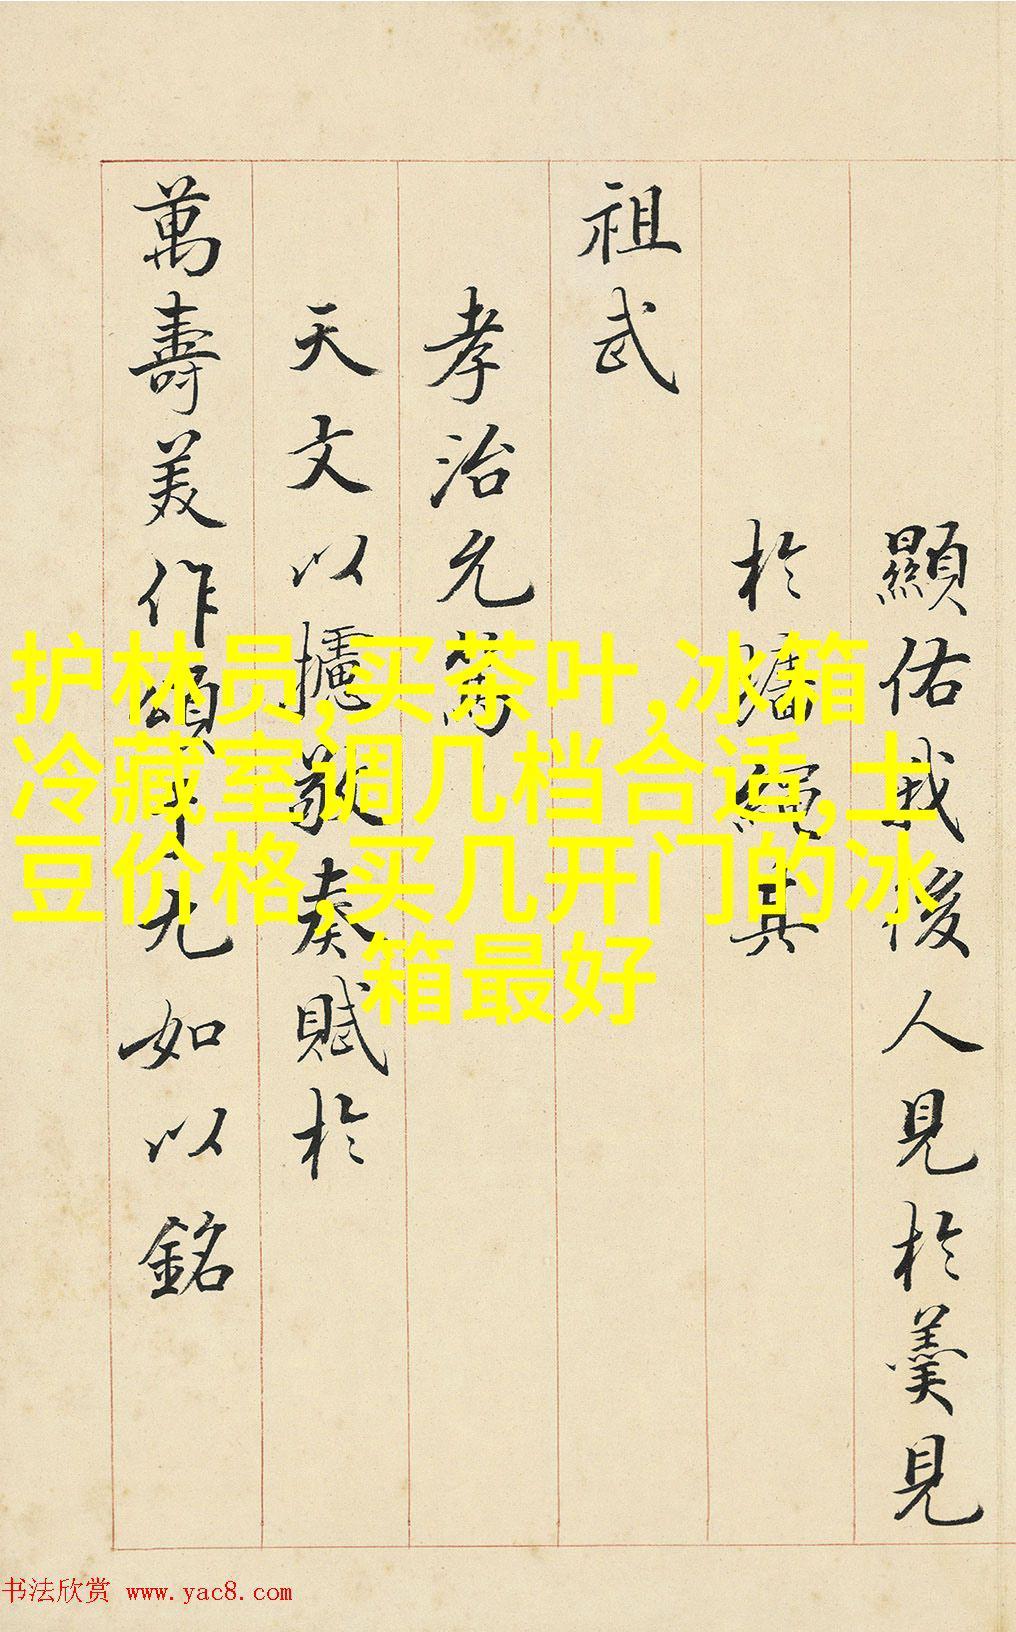 顯佑我後人見於羹見
於牆繩其
祖武
孝治允篤
天文以攄敬奏賦於
萬壽美作頌九如以銘
护林员,买茶叶,冰箱
冷藏室调几档合适,土
豆价格,买几开门的冰
箱最好
书法欣赏 www.yac8.com